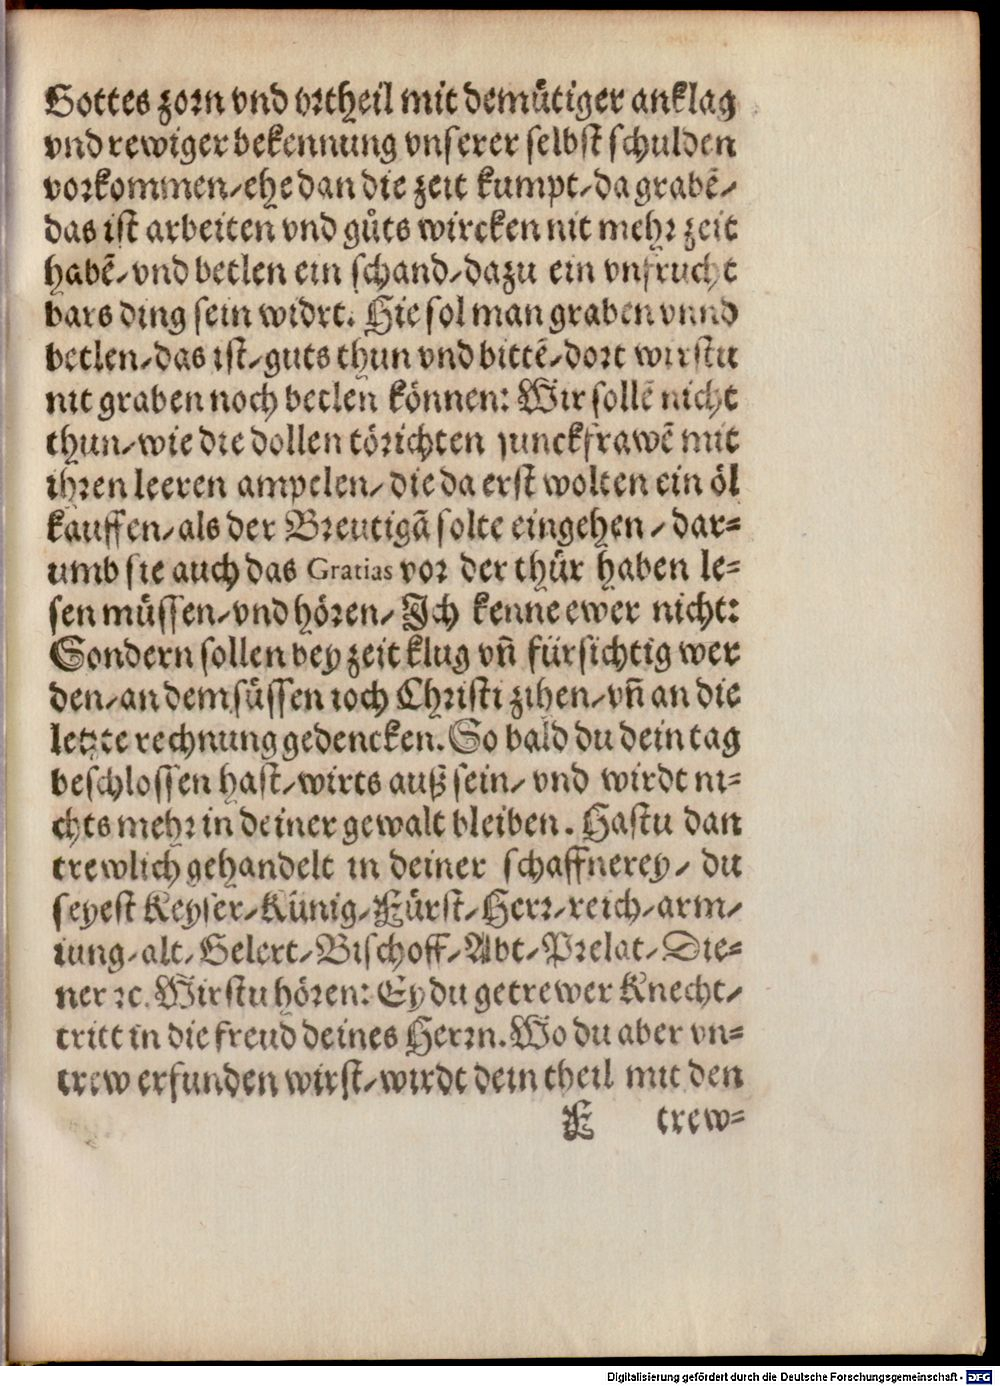 Gottes zorn vnd vrtheil mit demütiger anklag
vnd rewiger bekennung vnserer selbst schulden
vorkommen/ ehe dan die zeit kumpt/ da grabē/
das ist arbeiten vnd gůts wircken nit mehr zeit
habē/ vnd betlen ein schand/ dazu ein vnfrucht
bars ding sein widrt. Hie sol man graben vnnd
betlen/ das ist/ guts thun vnd bittē/ dort wirstu
nit graben noch betlen können: Wir sollē nicht
thun/ wie die dollen törichten junckfrawē mit
ihren leeren ampelen/ die da erst wolten ein öl
kauffen/ als der Breutigā solte eingehen/ dar-
umb sie auch das Gratias vor der thür haben le-
sen müssen/ vnd hören/ Ich kenne ewer nicht:
Sondern sollen bey zeit klug vn̄ fürsichtig wer
den/ an dem süssen ioch Christi zihen/ vn̄ an die
letzte rechnung gedencken. So bald du dein tag
beschlossen hast/ wirts auß sein/ vnd wirdt ni-
chts mehr in deiner gewalt bleiben. Hastu dan
trewlich gehandelt in deiner schaffnerey/ du
seyest Keyser/ Künig/ Fürst/ Herr/ reich/ arm/
iung/ alt/ Gelert/ Bischoff/ Abt/ Prelat/ Die-
ner ꝛc. Wirstu hören: Ey du getrewer Knecht/
tritt in die freud deines Herrn. Wo du aber vn-
trew erfunden wirst/ wirdt dein theil mit den
F trew-
Digitalisierung gefördert durch die Deutsche Forschungsgemeinschaft - DFG